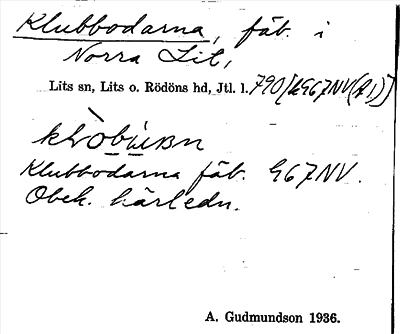 Klubbodarna, fäb. i
Norra Lit,
Lits sn, Lits o. Rödöns hd, Jtl. l.
Klubbodarna fäb. 967NV.
Obek. härledn.
A. Gudmundson 1936.